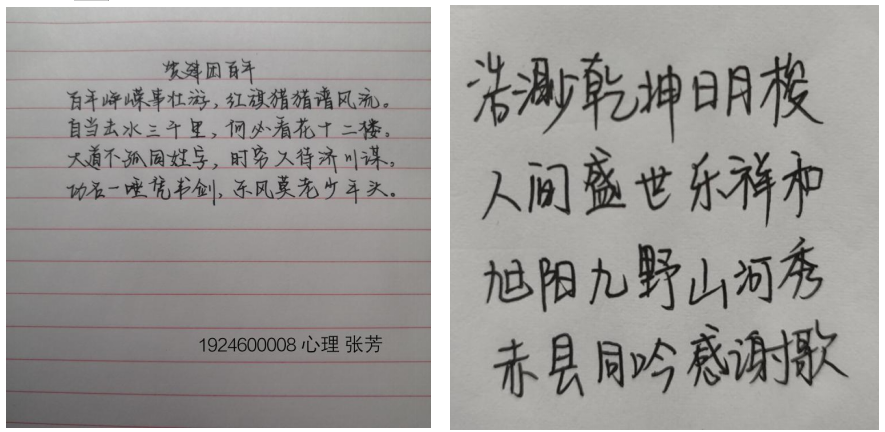 建团百年
百年峥嵘事壮游，红旗猎猎谱风流。
自当击水三千里，何必看花十二楼。
大道不孤同姓字，时穷人待济川谋。
功名一唾凭书剑，东风莫老少年头。
1924600008 心理 张芳
浩渺乾坤日月梭
人间盛世乐祥和
旭阳九野山河秀
赤县同吟感谢歌